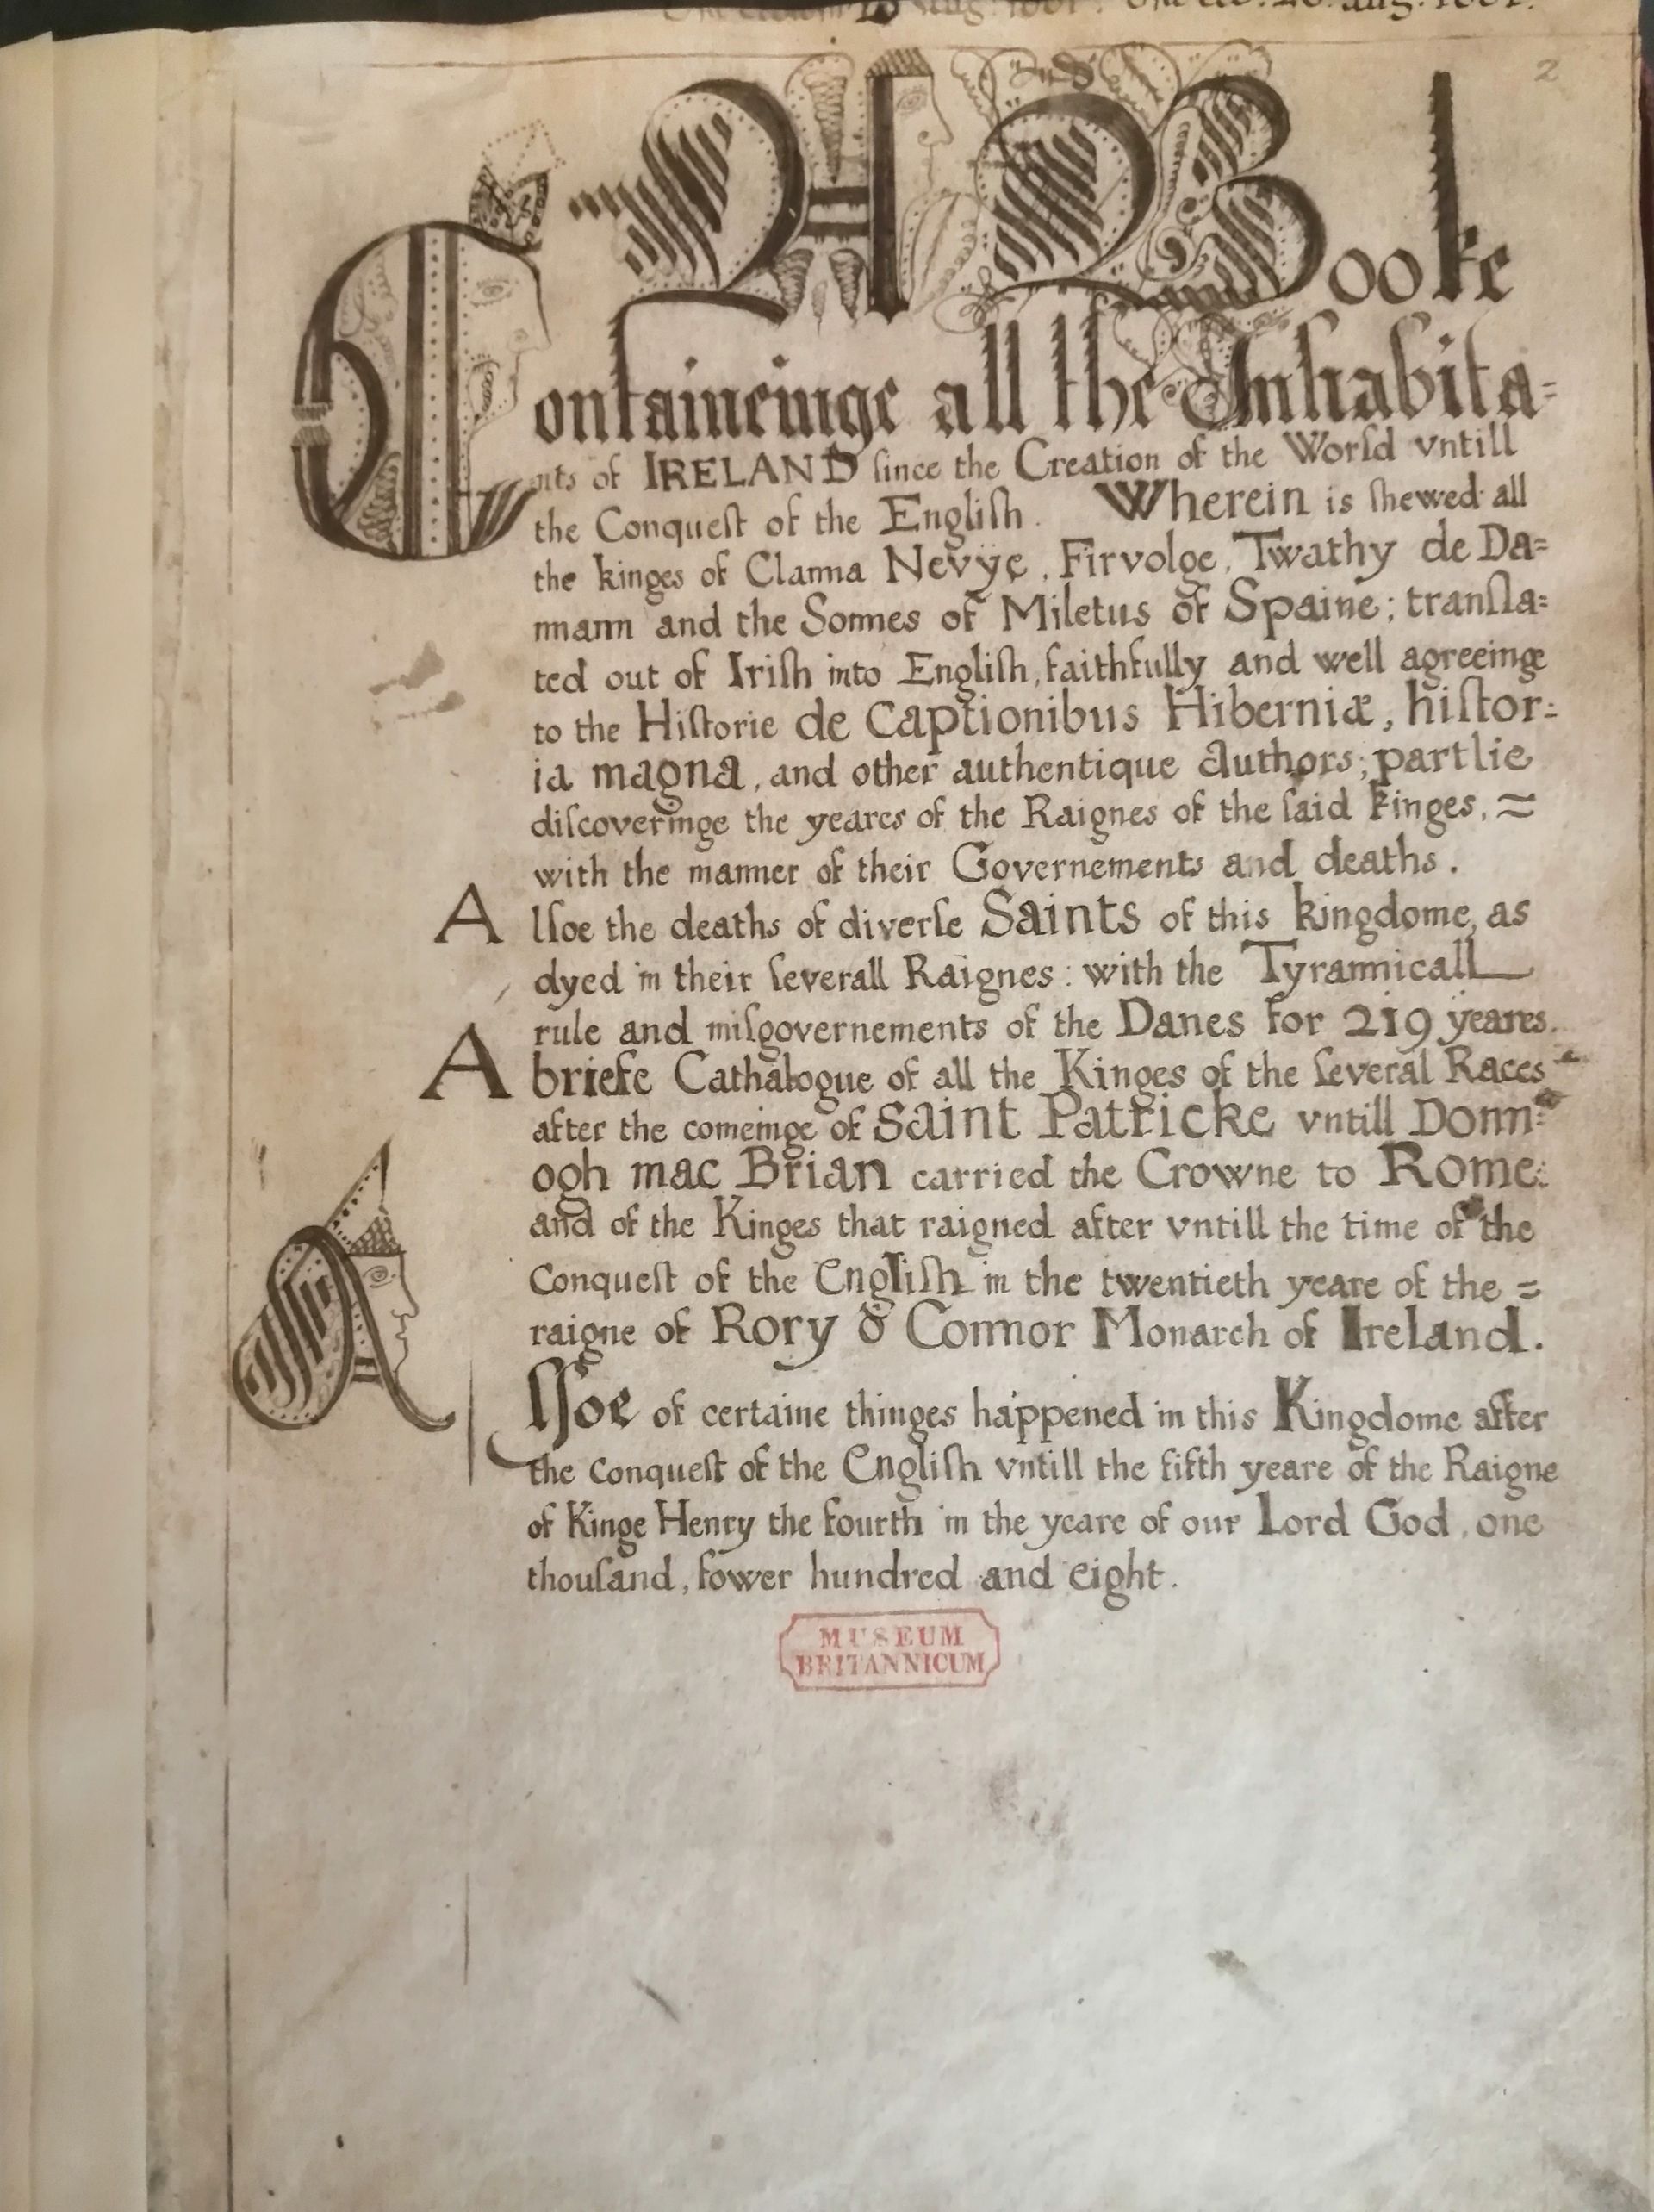 2
A Booke
Containeinge all the Inhabita=
nts of IRELAND ſince the Creation of the World vntill
the Conqueſt of the Engliſh. Wherein is ſhewed all
the kinges of Clanna Nevÿe, Firvolge, Twathy de Da=
nnann and the Sonnes of Miletus of Spaine; tranſla=
ted out of Iriſh into Engliſh, faithfully and well agreeinge
to the Hiſtorie de Captionibus Hiberniæ, hiſtor=
ia magna, and other authentique authors; partlie
diſcoveringe the yeares of the Raignes of the ſaid kinges, =
with the manner of their Governements and deaths.
Alſoe the deaths of diverſe Saints of this kingdome, as
dyed in their ſeverall Raignes: with the Tyrannicall
rule and miſgovernements of the Danes for 219 yeares.
A briefe Cathalogue of all the Kinges of the ſeveral Races
after the comeinge of Saint Patricke vntill Donn=
ogh mac Brian carried the Crowne to Rome:
and of the Kinges that raigned after vntill the time of the
Conqueſt of the Engliſh in the twentieth yeare of the =
raigne of Rory ó Connor Monarch of Ireland.
Alſoe of certaine thinges happened in this Kingdome after
the Conqueſt of the Engliſh vntill the fifth yeare of the Raigne
of Kinge Henry the fourth in the yeare of our Lord God, one
thouſand, fower hundred and eight.
MUSEUM
BRITANNICUM